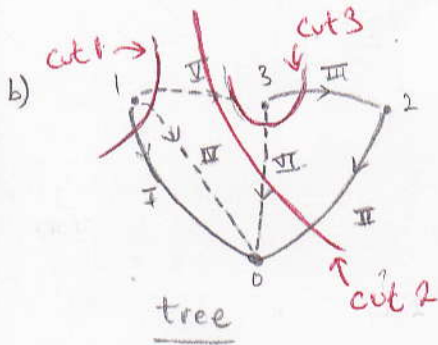 cut 1
cut 3
b)
1
V
3
III
2
IV
VI
I
II
0
cut 2
tree